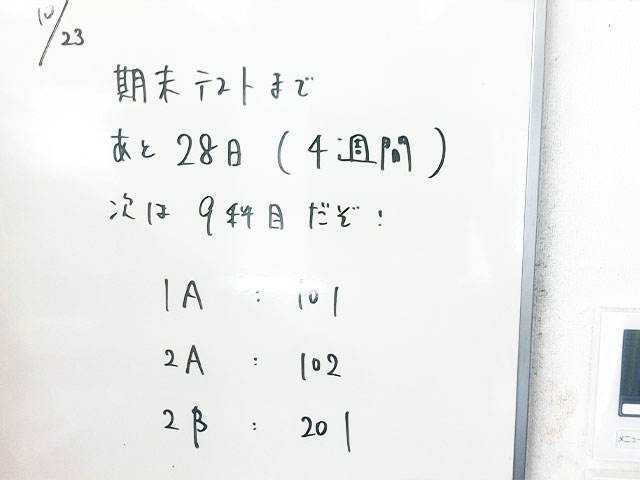 10/23
期末テストまで
あと 28日 (4週間)
次は 9科目だぞ!
1A : 101
2A : 102
2β : 201
メニュー